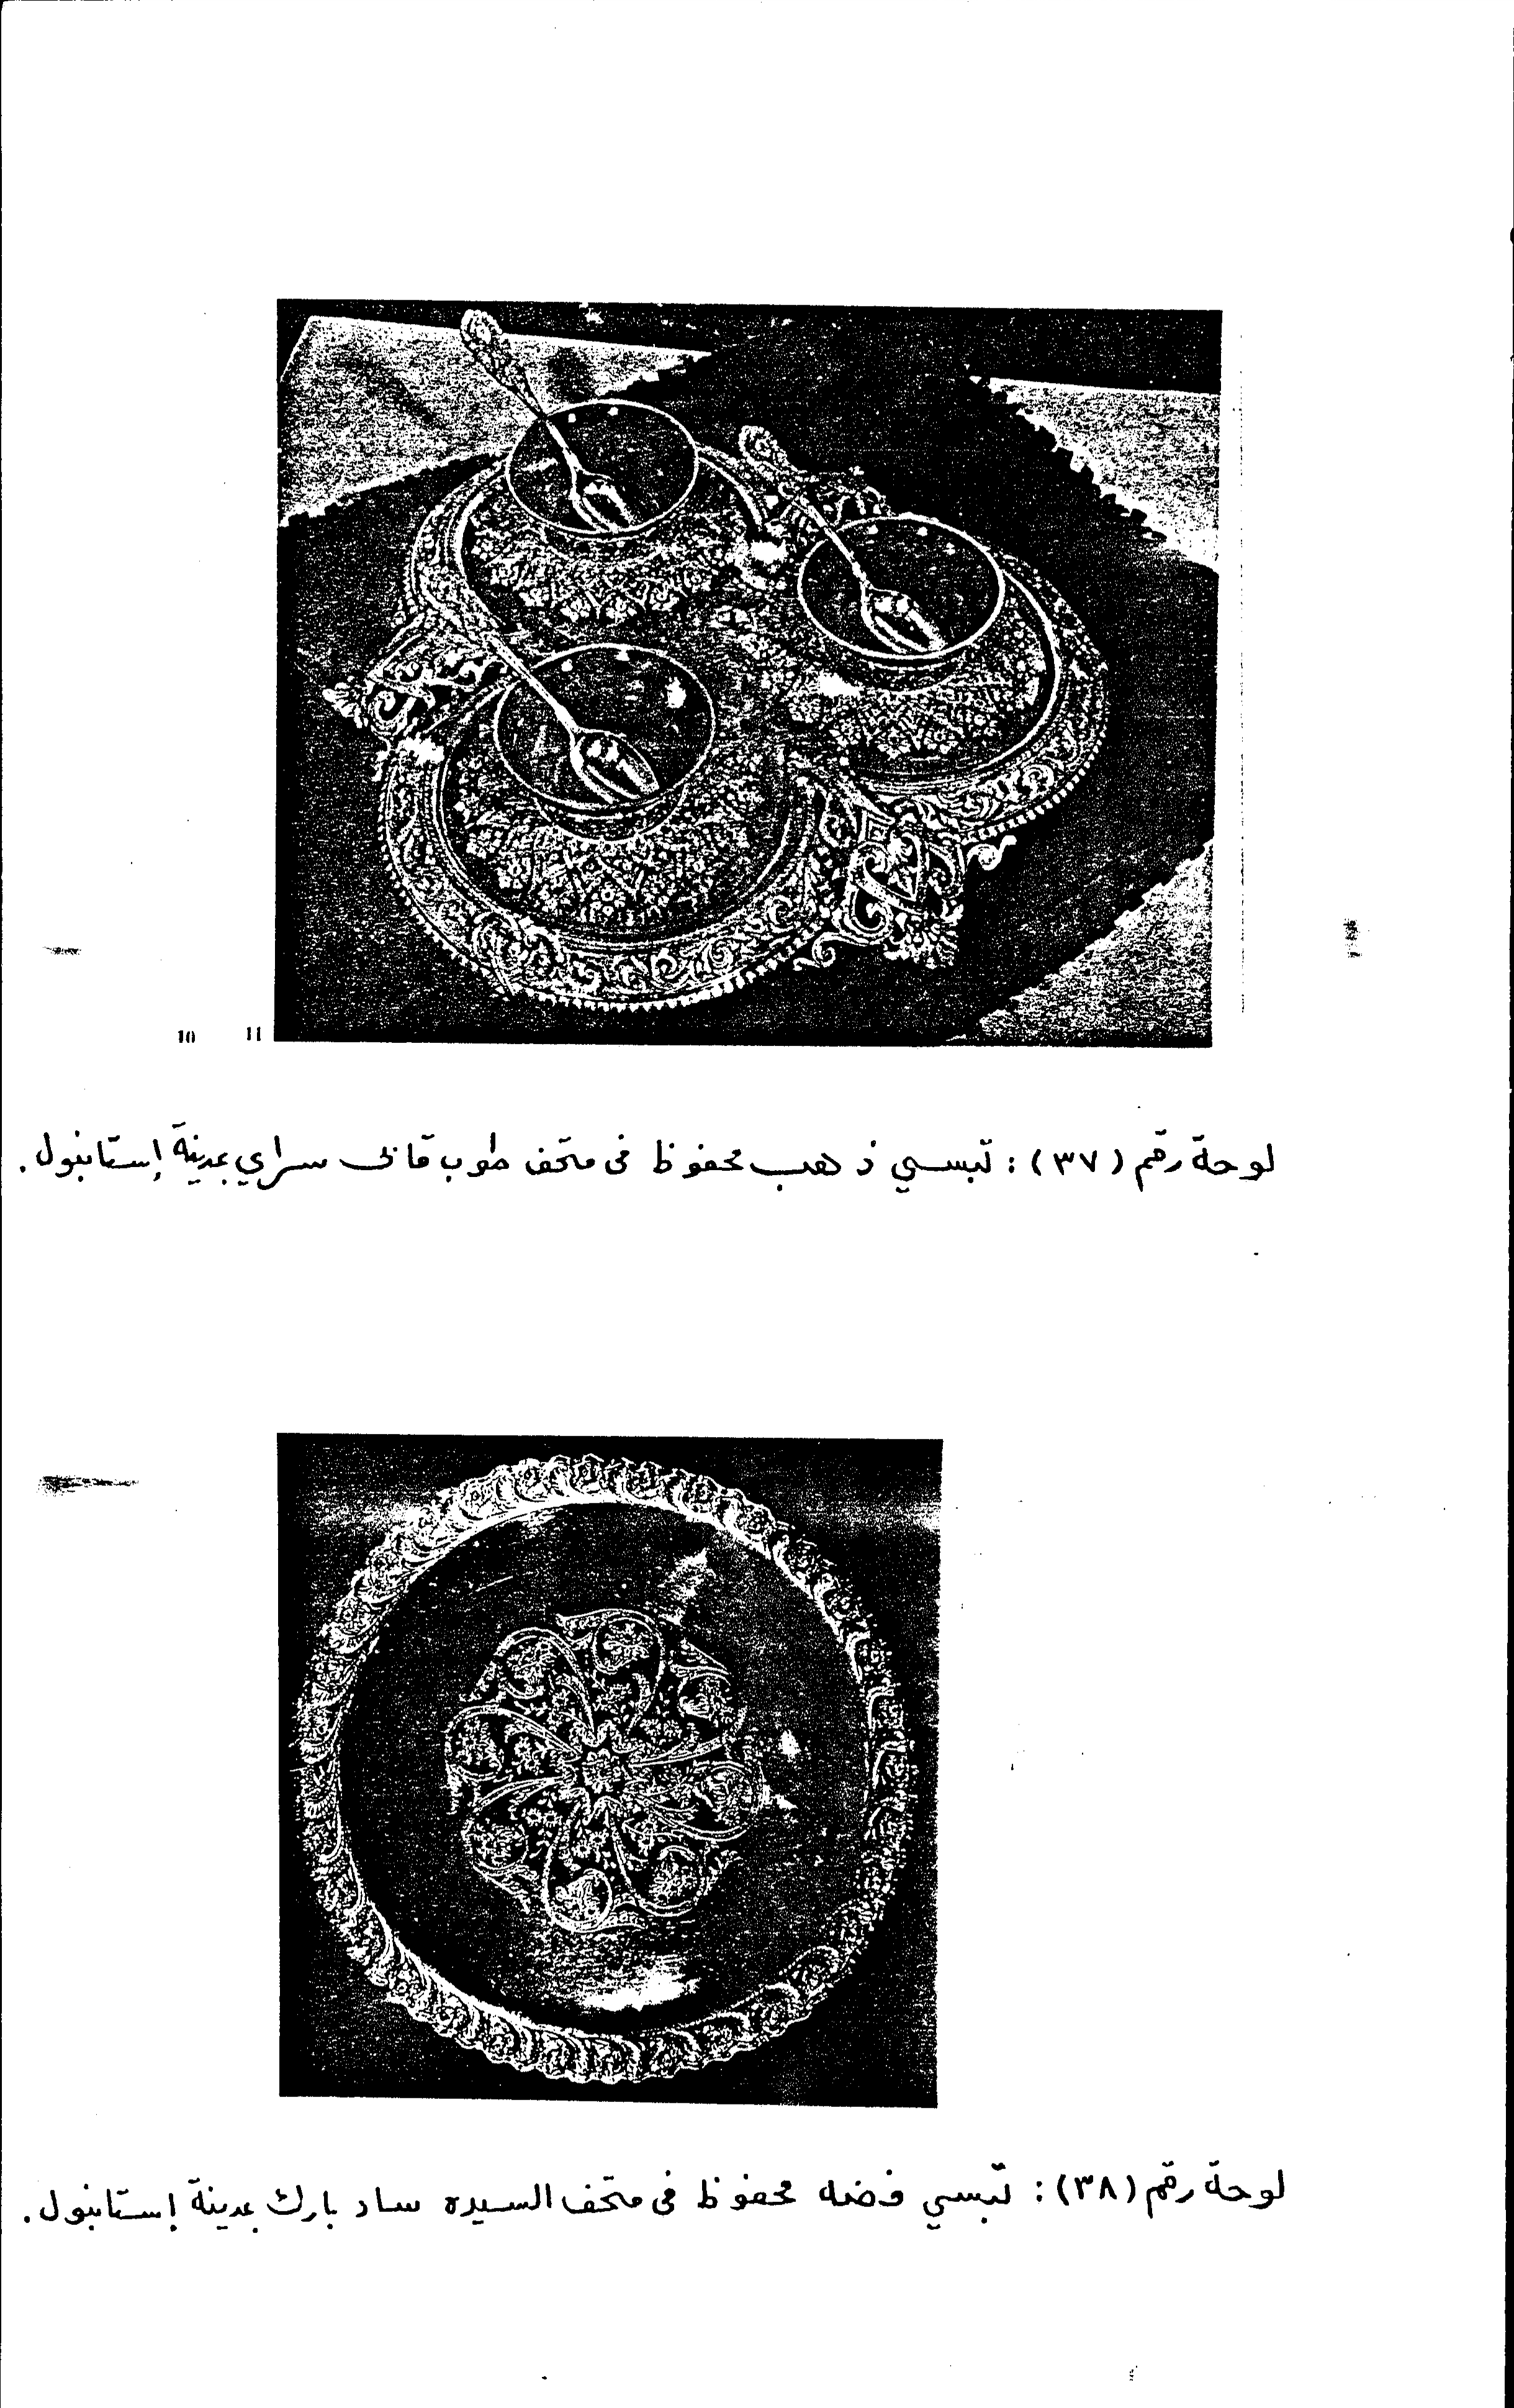 10 11
لوحة رقم (٣٧) : تبسي ذهب محفوظ فى متحف طوب قابى سراي بمدينة إستانبول .
لوحة رقم (٣٨) : تبسي فضه محفوظ فى متحف السيده ساد بارك بمدينة إستانبول .